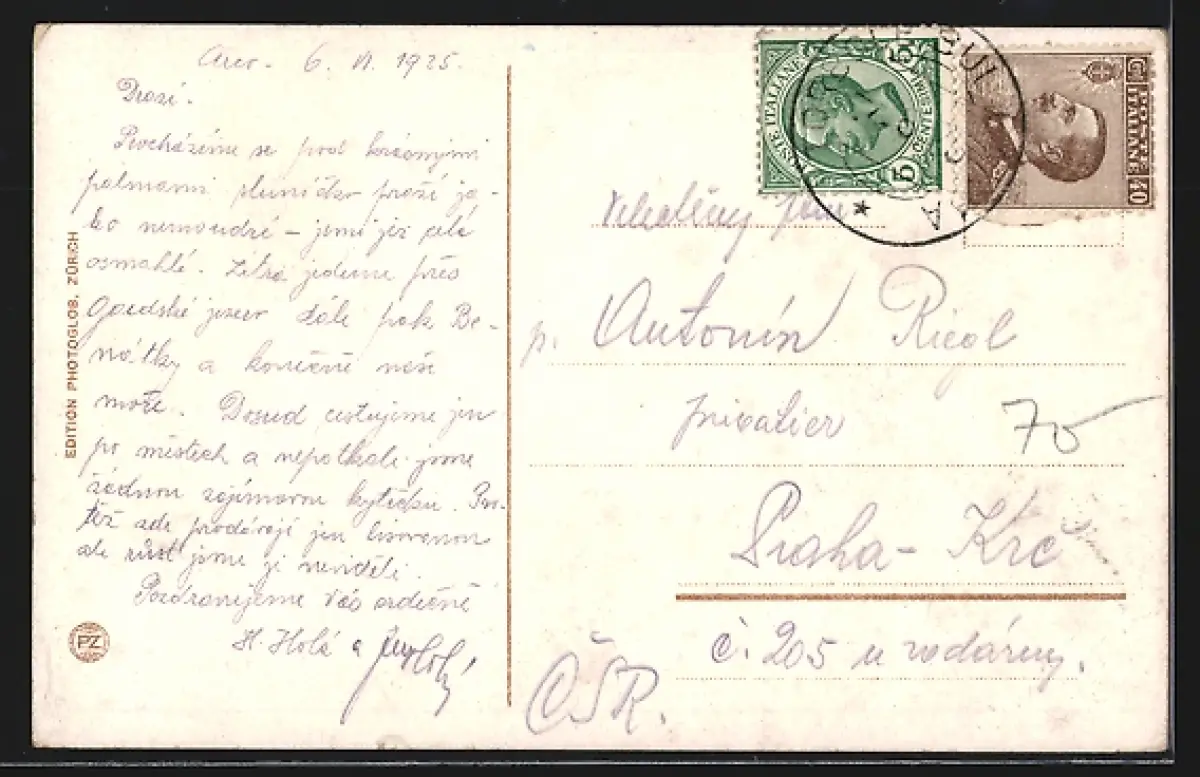 Arco. 6. VI. 1925.
Drazí.
Procházíme se pod krásnými
palmami sluníčko praží ja-
ko nemoudré – jsme již celé
osmahlé. Zítra jedeme přes
Gardské jezero dále pak Be-
nátky a konečně naše
moře. Dosud cestujeme jen
po městech a nepotkali jsme
žádnou zajímavou kytičku.
též zde prodávají jen lisovanou
ale růst jsme ji neviděli.
Pozdravujeme Vás srdečně
H. Holá a Holý
EDITION PHOTOGLOB. ZÜRICH
PZ
POSTE ITALIANE
5 CENTESIMI 5
POSTE ITALIANE
Cmi 40
Velectěný pan
p. Antonín Riegl
privatier
70
Praha - Krč
č. 205 u vodárny.
ČSR.